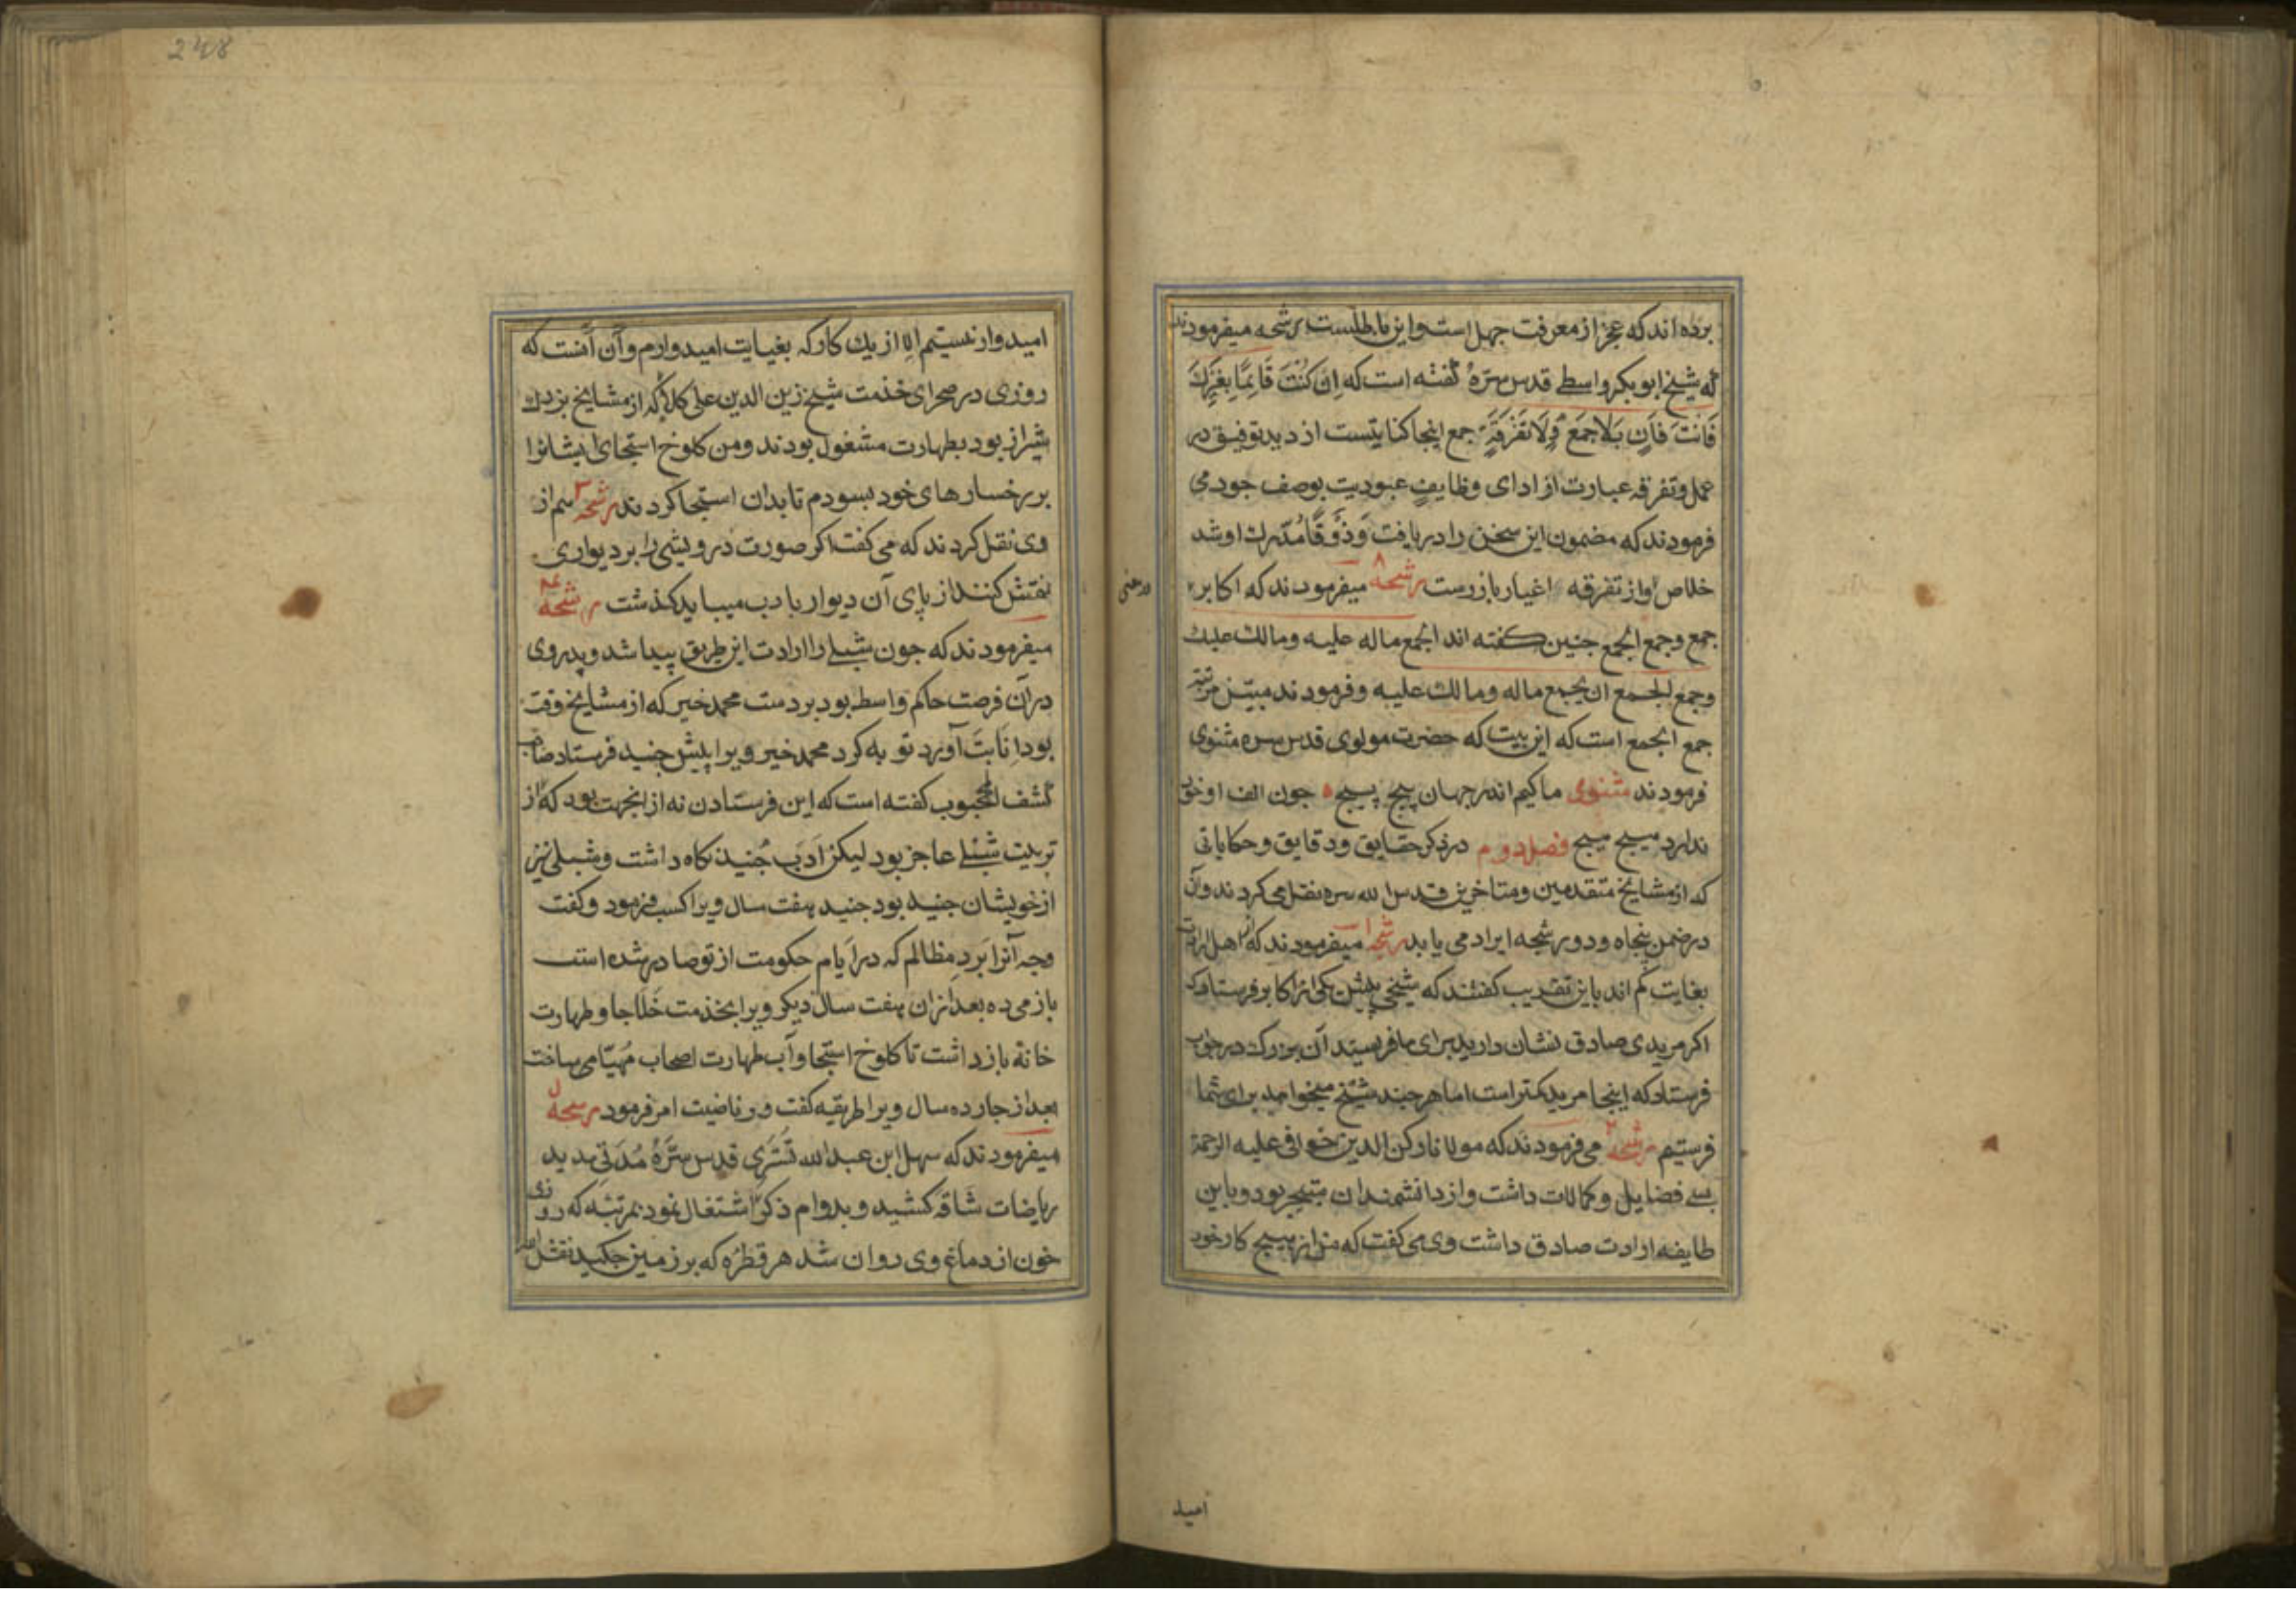 برده اند که عجز از معرفت جهل است و این باطلست رشحه میفرمودند
که شیخ ابو بکر واسطی قدس سره گفته است که اِن کُنتَ قَایِمًا بِغَیرِکَ
فَانتَ فَانٍ بَلَا جَمعٍ وَلَا تَفرَقَةٍ جمع اینجا کنایتست از دید توفیق در
عمل و تفرقه عبارت از ادای وظایف عبودیت بوصف جود می
فرمودند که مضمون این سخن را دریافت وَذَوقًا مُدرک او شد
خلاص او از تفرقه اغیار باز رست رشحه ۸ میفرمودند که اکابر
در معنی
جمع و جمع الجمع جنین کفته اند الجمع ماله علیه ومالک علیک
وجمع الجمع ان یجمع ماله ومالک علیه و فرمودند مبین مرتبه
جمع الجمع است که این بیت که حضرت مولوی قدس سره مثنوی
فرمودند مثنوی ما کیم اندر جهان پیج پیج ٥ جون الف او خود
ندارد میسیج میسیج فصل دوم در ذکر حقایق و دقایق و حکایاتی
که از مشایخ متقدمین ومتاخرین قدس الله سره نقل می کردند وآن
در ضمن پنجاه و دو رشحه ایراد می یابد رشحه ۱ میفرمودند که اهل ارادت
بغایت کم اند باین تقریب کفتند که شیخی پیش یکی از اکابر فرستاد که
اکر مریدی صادق نشان دارید برای ما فرستید آن بزرک در جواب
فرستاد که اینجا مرید کمتر است اما هر جند شیخ میخواهید برای شما
فرستیم رشحه ۲ می فرمودند که مولانا رکن الدین خوافی علیه الرحمة
بسی فضایل و کمالات داشت و از دانشمندان متبحر بود و باین
طایفه ارادت صادق داشت وی می کفت که من از هیج کار خود
امید
248
امیدوار نیستم الا از یک کار که بغایت امیدوارم و آن آنست که
روزی در صحرای خدمت شیخ زین الدین علی کلا که از مشایخ بزرک
شیراز بود بطهارت مشغول بودند ومن کلوخ استنجای ایشانرا
بر رخسارهای خود بسودم تا بدان استنجا کردند رشحه ۳ هم از
وی نقل کردند که می کفت اکر صورت درویشی را بر دیواری
نقش کنند از پای آن دیوار بادب میباید کذشت رشحه ۴
میفرمودند که جون شبلی را ارادت این طریق پیدا شد و پدر وی
در آن فرصت حاکم واسط بود بر دست محمد خیر که از مشایخ وقت
بود اِنابَت آورد توبه کرد محمد خیر ویرا پیش جنید فرستاد صاحب
کشف المحجوب کفته است که این فرستادن نه از انجهت بود که از
تربیت شبلی عاجز بود لیکن ادَب جُنید نکاه داشت و شبلی نیز
از خویشان جنید بود جنید هفت سال ویرا کسب فرمود و کفت
وجه آنرا بَردِ مظالم که در اَیام حکومت از تو صادر شده است
باز می ده بعد ازان هفت سال دیکر ویرا بخدمت خَلاجا و طهارت
خانه باز داشت تا کلوخ استنجا و آب طهارت اصحاب مُهیّا می ساخت
بعد از جارده سال ویرا طریقه کفت و ریاضیت امر فرمود رشحه
میفرمودند که سهل ابن عبد الله تُستَری قدس سِرَّهُ مُدتی مدید
ریاضات شاقه کشید و بدوام ذکر اشتغال نمود بمرتبه که روزی
خون از دماغ وی روان شد هر قطره که بر زمین جکید نقش الله